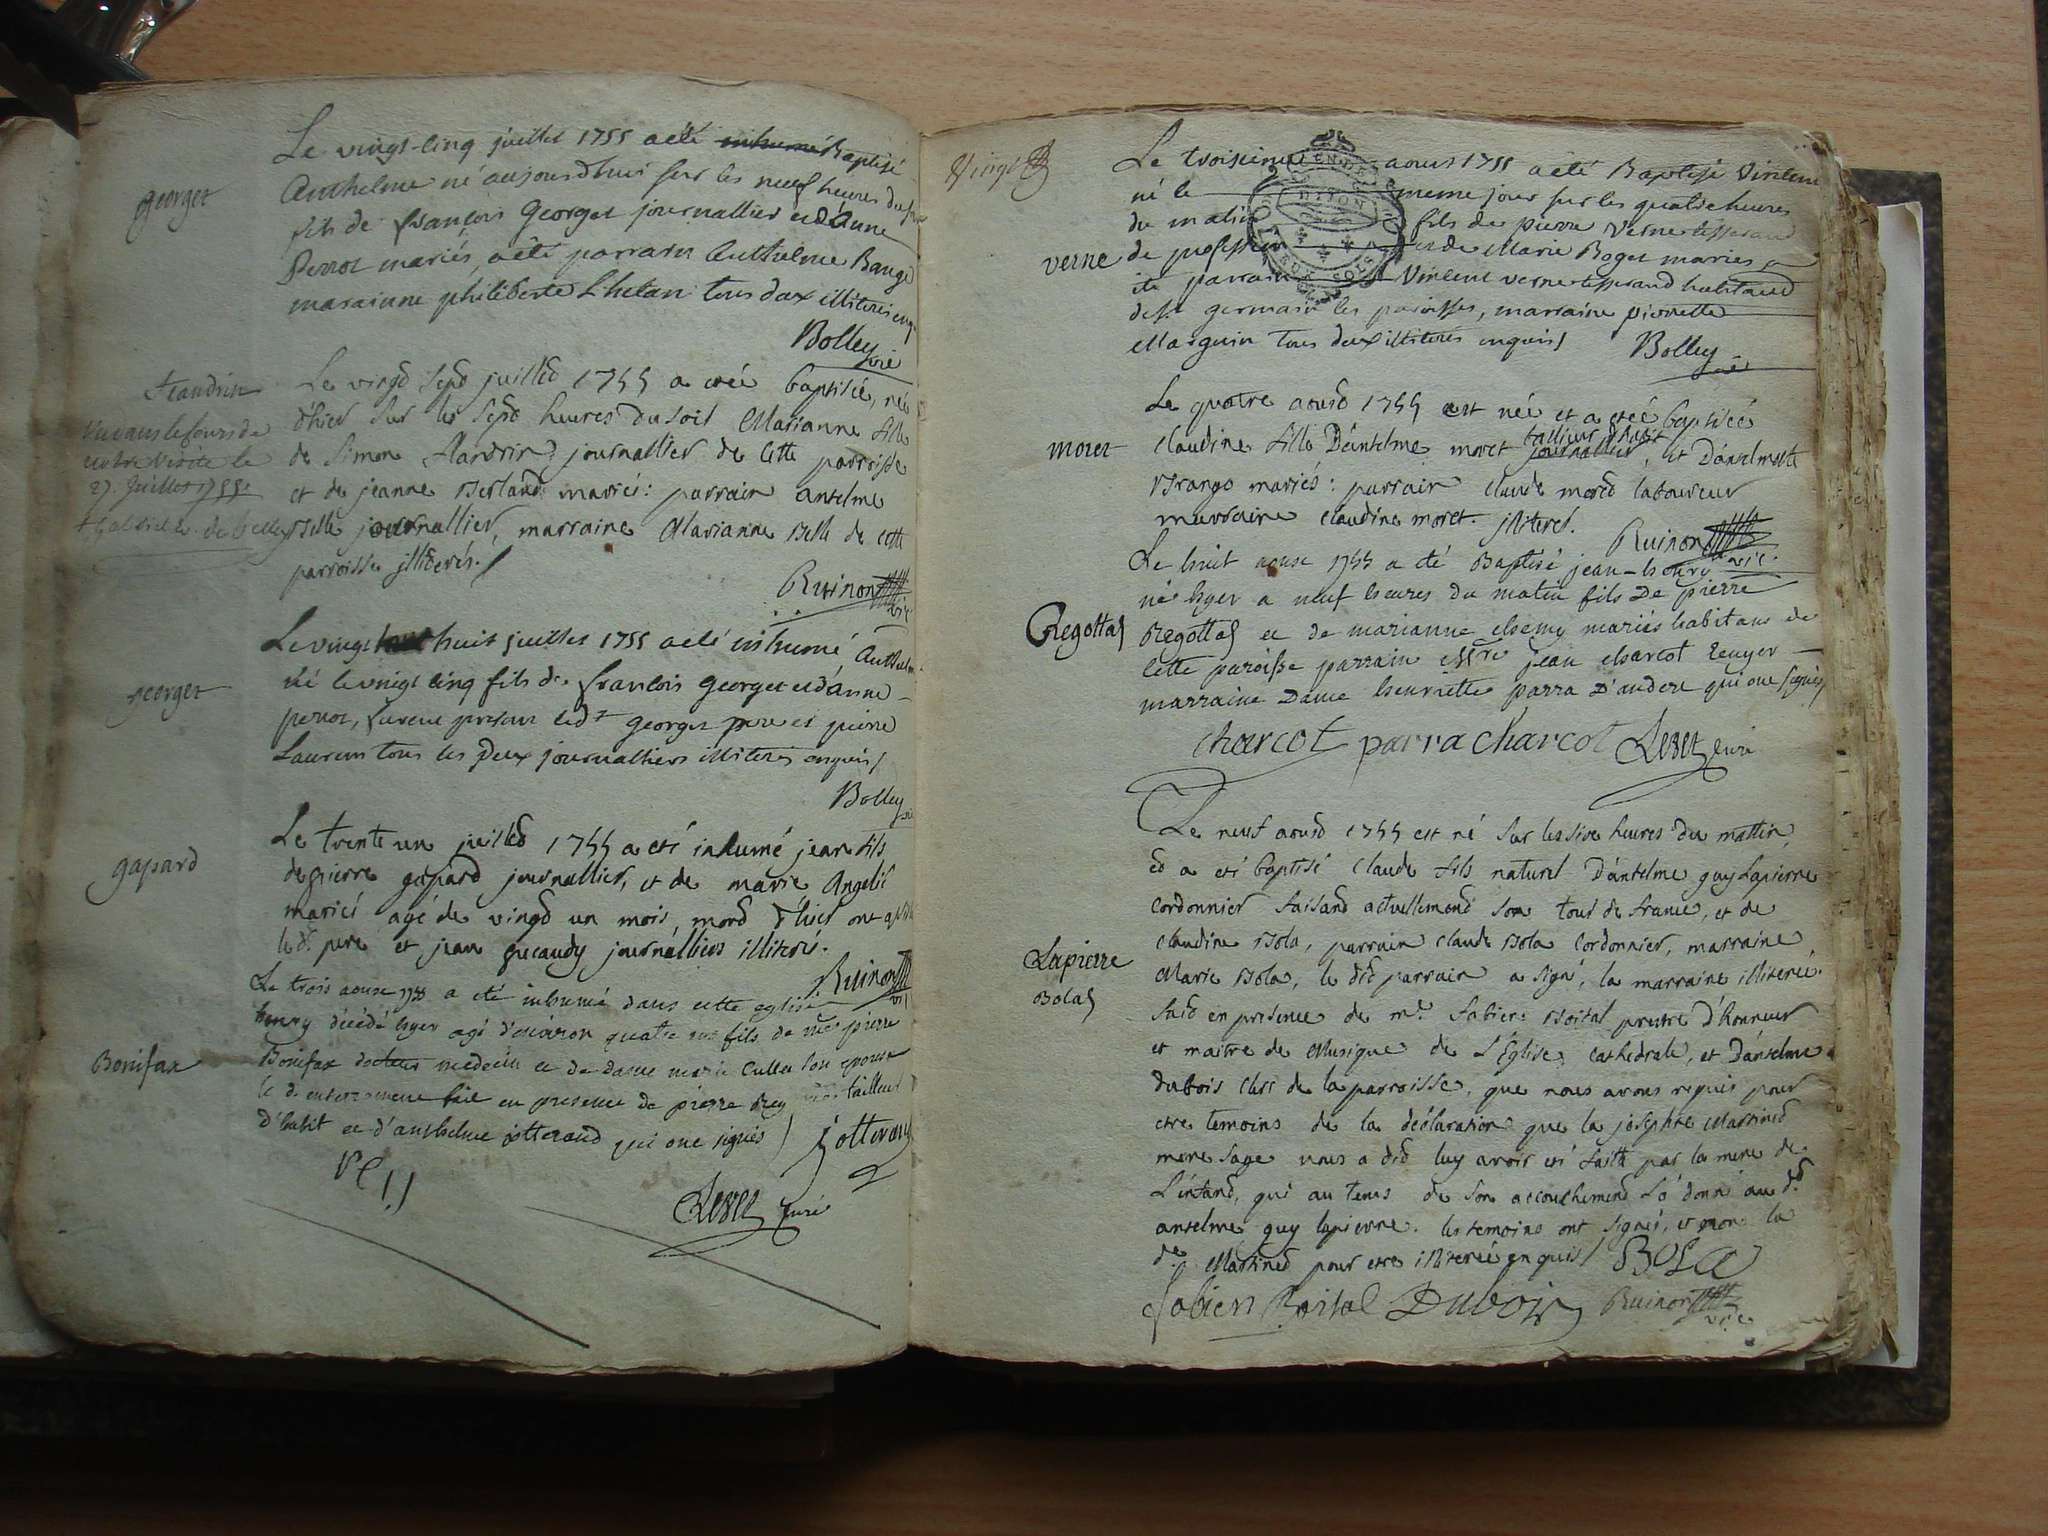 georget
Le vingt-cinq juillet 1755 a été inhumé Baptisé
Anthelme né aujourdhuis sur les neuf heures du soir
fils de françois Georget journallier et d'anne
Perrot mariés, a été parrain Anthelme Bange
maraine philiberte L'hetan tous deux illiterés enq.
Bolley vic
flandrin
Vu dans le cours de
notre visite le
27. Juillet 1755.
+ Gabriel e. de Belley
Le vingt sept juilled 1755 a etée baptisée, née
d'hier sur les sept heures du soir Marianne fille
de Simon flandrin journallier de cette parroisse
et de jeanne Berland mariés: parrain anselme
Belle journallier, marraine Marianne Belle de cette
parroisse illiterés.
Ruinon vic
georget
Le vingt huit juillet 1755 a été inhumé, Anthelme
né le vingt cinq fils de françois georget et d'anne
perrot, furent presens led.t georget pere et pierre
Laurent tous les deux journalliers illiterés enquis
Bolley vic
gapard
Le trente un juilled 1755 a eté inhumé jean fils
de pierre gapard journallier, et de marie Angelie
mariés agé de vingt un mois, mord d'hier ont assisté
le d. pere et jean jucaudy journalliers illiteré.
Ruinon vic
Bonifax
Le trois aoust 1755 a eté inhumé dans cette eglise
henry décédé hyer agé d'environ quatre ans fils de me pierre
Bonifax docteur medecin et de dame marie Cullet son epouse
le d. enterrement fait en presence de pierre Rey tailleur
d'habit et d'anthelme jotterand qui ont signés
jotterand
Rey
Levet curé
Vingt
verne
Le troisieme aoust 1755 a été Baptisé Vincent
né le meme jour sur les quatre heures
du matin fils de pierre verne tisserand
de profession et de Marie Boget mariés a
été parrain Vincent verne tisserand habitand
de st germain les paroisses, marraine pierrette
Marguin tous deux illiterés enquis
Bolley vic
moret
Le quatre aoust 1755 est née et a etée baptisée
claudine fille D'anselme moret journallier tallieur d'habit, et D'anselmette
Brango mariés: parrain claude mored laboureur
marraine claudine moret. jlliterés.
Ruinon vic.
Regottaz
Le huit aoust 1755 a eté Baptisé jean-henry
né hyer a neuf heures du matin fils de pierre
Regottaz et de marianne chemy mariés habitans de
cette paroisse parrain essre jean charcot Ecuyer
marraine Dame henriette parra D'andert qui ont signés
charcot parra charcot Levet curé
Lapierre
Bolaz
Le neuf aousd 1755 est né sur les sixe heures du mattin,
ed a eté baptisé claude fils naturel D'antelme guy Lapierre
cordonnier faisand actuellemend son tour de france, et de
claudine Bola, parrain claude Bola cordonnier, marraine
Marie Bola, le did parrain a signé, la marraine illiterée.
faid en presence de mr. fabien Boital prestre d'honneur
et maitre de Musique de L'Église cathedrale, et D'antelme
dubois clerc de la parroisse, que nous avons requis pour
etre temoins de la déclaration que la josephte Martined
mere sage nous a did luy avoir eté faitte par la mere de
L'enfand, qui au tems de son accouchemend L'a donné au d.
anselme guy lapierre. les temoins ont signés, et non la
de. Martined pour etre illiterée enquis
Bola
fabien Boital Dubois Ruinon vic